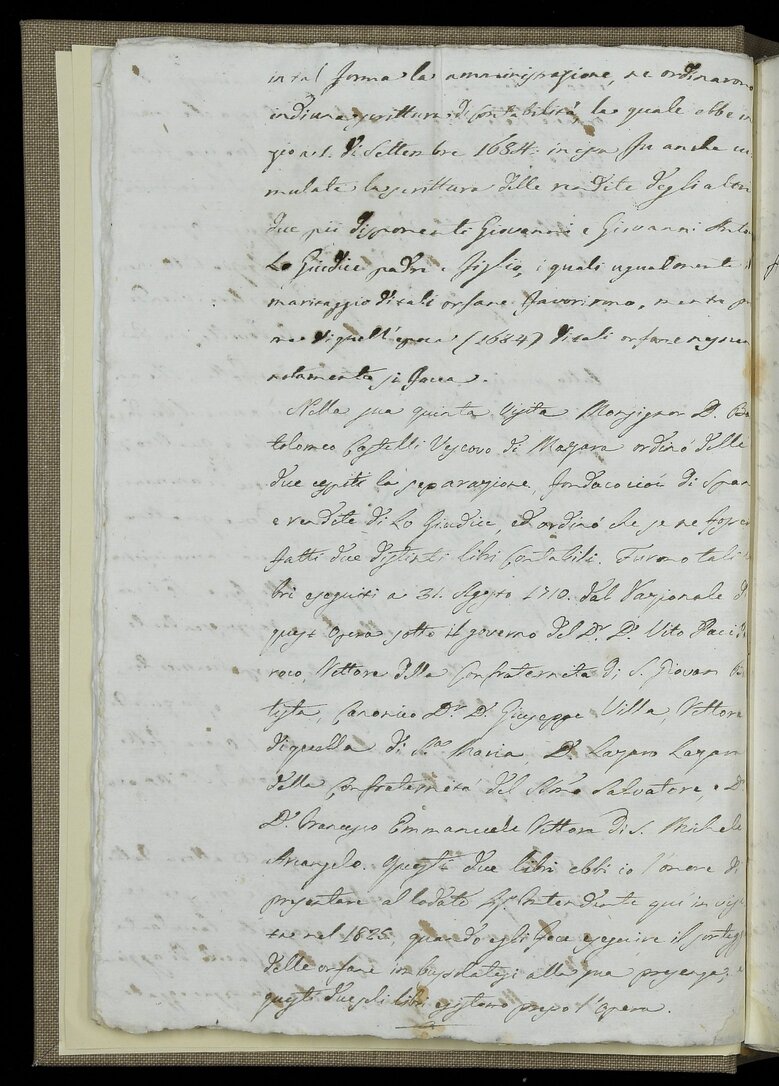 in tal forma la amministrazione, ne ordinarono
indi una scrittura di contabilità, la quale ebbe in
zio a 1. di Settembre 1684. in essa fu anche cu
mulata la scrittura delle rendite degli altri
due pii disponenti Giovanni e Giovanni Anto
Lo Giudice padre e figlio, i quali ugualmente il
maritaggio di tali orfane favorirono, mentre p
ma di quell'epoca (1684) di tali orfane nessun
notamento si facea.
Nella sua quinta visita Monsignor D. Bar
tolomeo Castelli Vescovo di Mazara ordinò delli
due cespiti la separazione, fondaco cioè di Span
e rendite di Lo Giudice, ed ordinò che se ne fosser
fatti due distinti libri contabili. Furono tali li
bri eseguiti a 31. Agosto 1710. dal Razionale di
quest'Opera sotto il governo del Dr. Dn. Vito Paci
Rettore della Confraternita di S. Giovan Bat
tista, Canonico Dr. Dn. Giuseppe Villa, Rettore
di quella di Sta. Maria, Dn. Lazaro Lazzara
della Confraternita del Ssmo Salvatore, e Dr.
Dn. Francesco Emmanuele Rettore di S. Michele
Arcangelo. Questi due libri ebbi io l'onore di
presentare al lodato Sigr. Intendente qui in visi
ta nel 1825, quando egli fece eseguire il sorteggio
delle orfane imbussolatesi alla sua presenza, e
questi due soli libri esistono presso l'Opera.